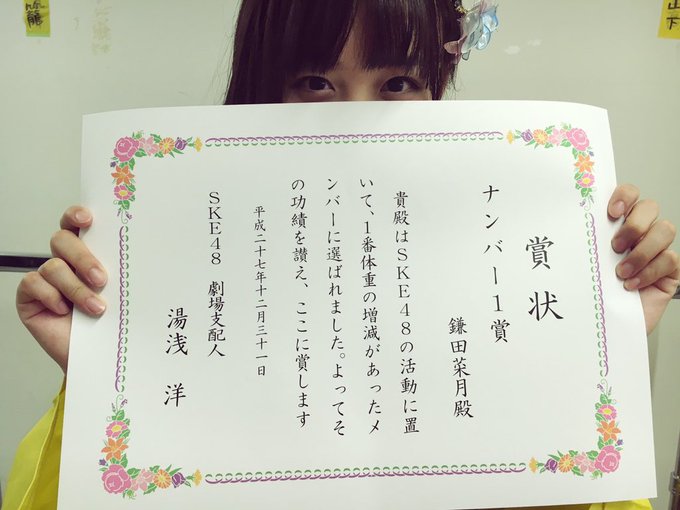 賞状
ナンバー1賞
鎌田菜月殿
貴殿はSKE48の活動に置
いて、1番体重の増減があったメ
ンバーに選ばれました。よってそ
の功績を讃え、ここに賞します
平成二十七年十二月三十一日
SKE48 劇場支配人
湯浅 洋
山下